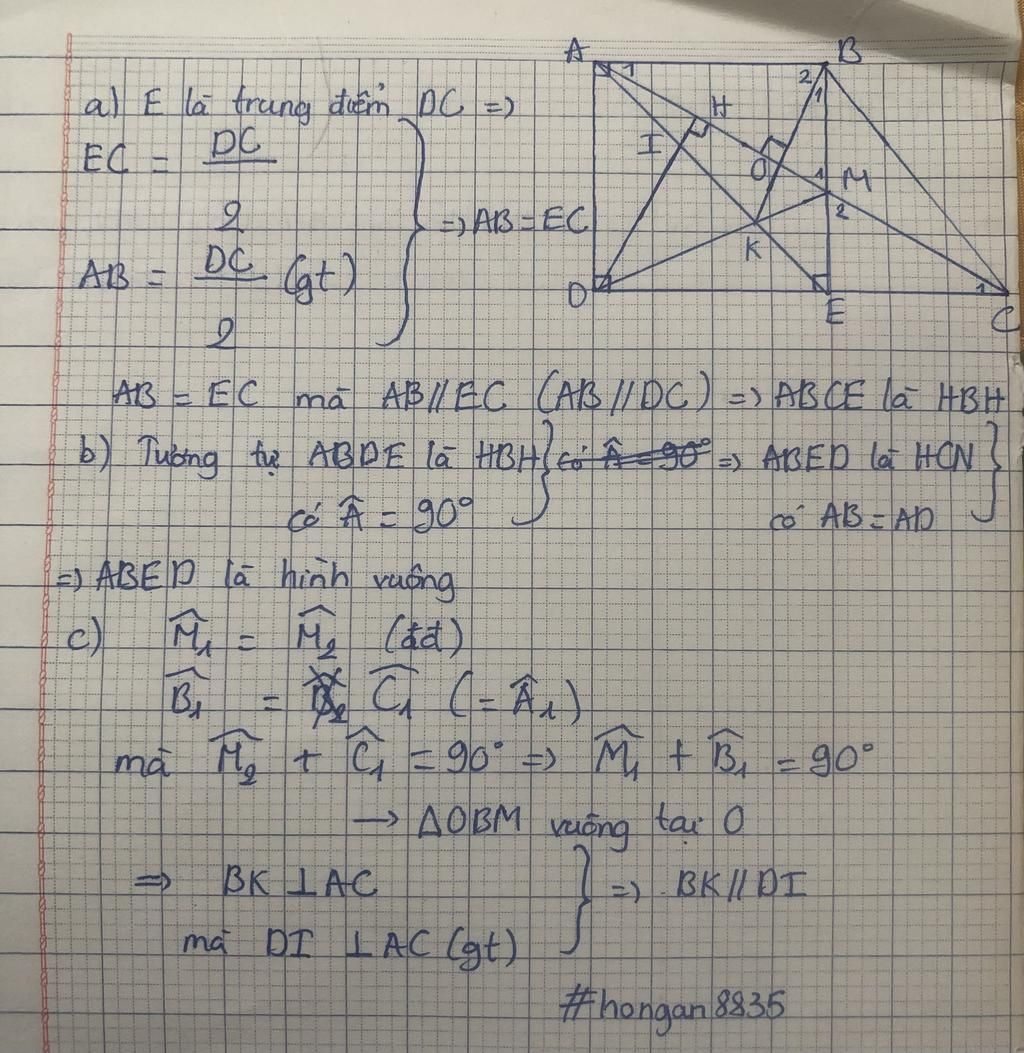 a) E là trung điểm DC =>
EC = DC/2
AB = DC/2 (gt)
=> AB = EC
A 1 2 B 1
H
I
O 1 M
2
K
D E 1 C
AB = EC mà AB // EC (AB // DC) => ABCE là HBH
b) Tương tự ABDE là HBH có Â = 90° => ABED là HCN
có Â = 90° có AB = AD
=> ABED là hình vuông
c) M̂1 = M̂2 (đđ)
B̂1 = B̂2 Ĉ1 (= Â1)
mà M̂2 + Ĉ1 = 90° => M̂1 + B̂1 = 90°
→ ΔOBM vuông tại O
=> BK ⊥ AC
=> BK // DI
mà DI ⊥ AC (gt)
#hongan8835